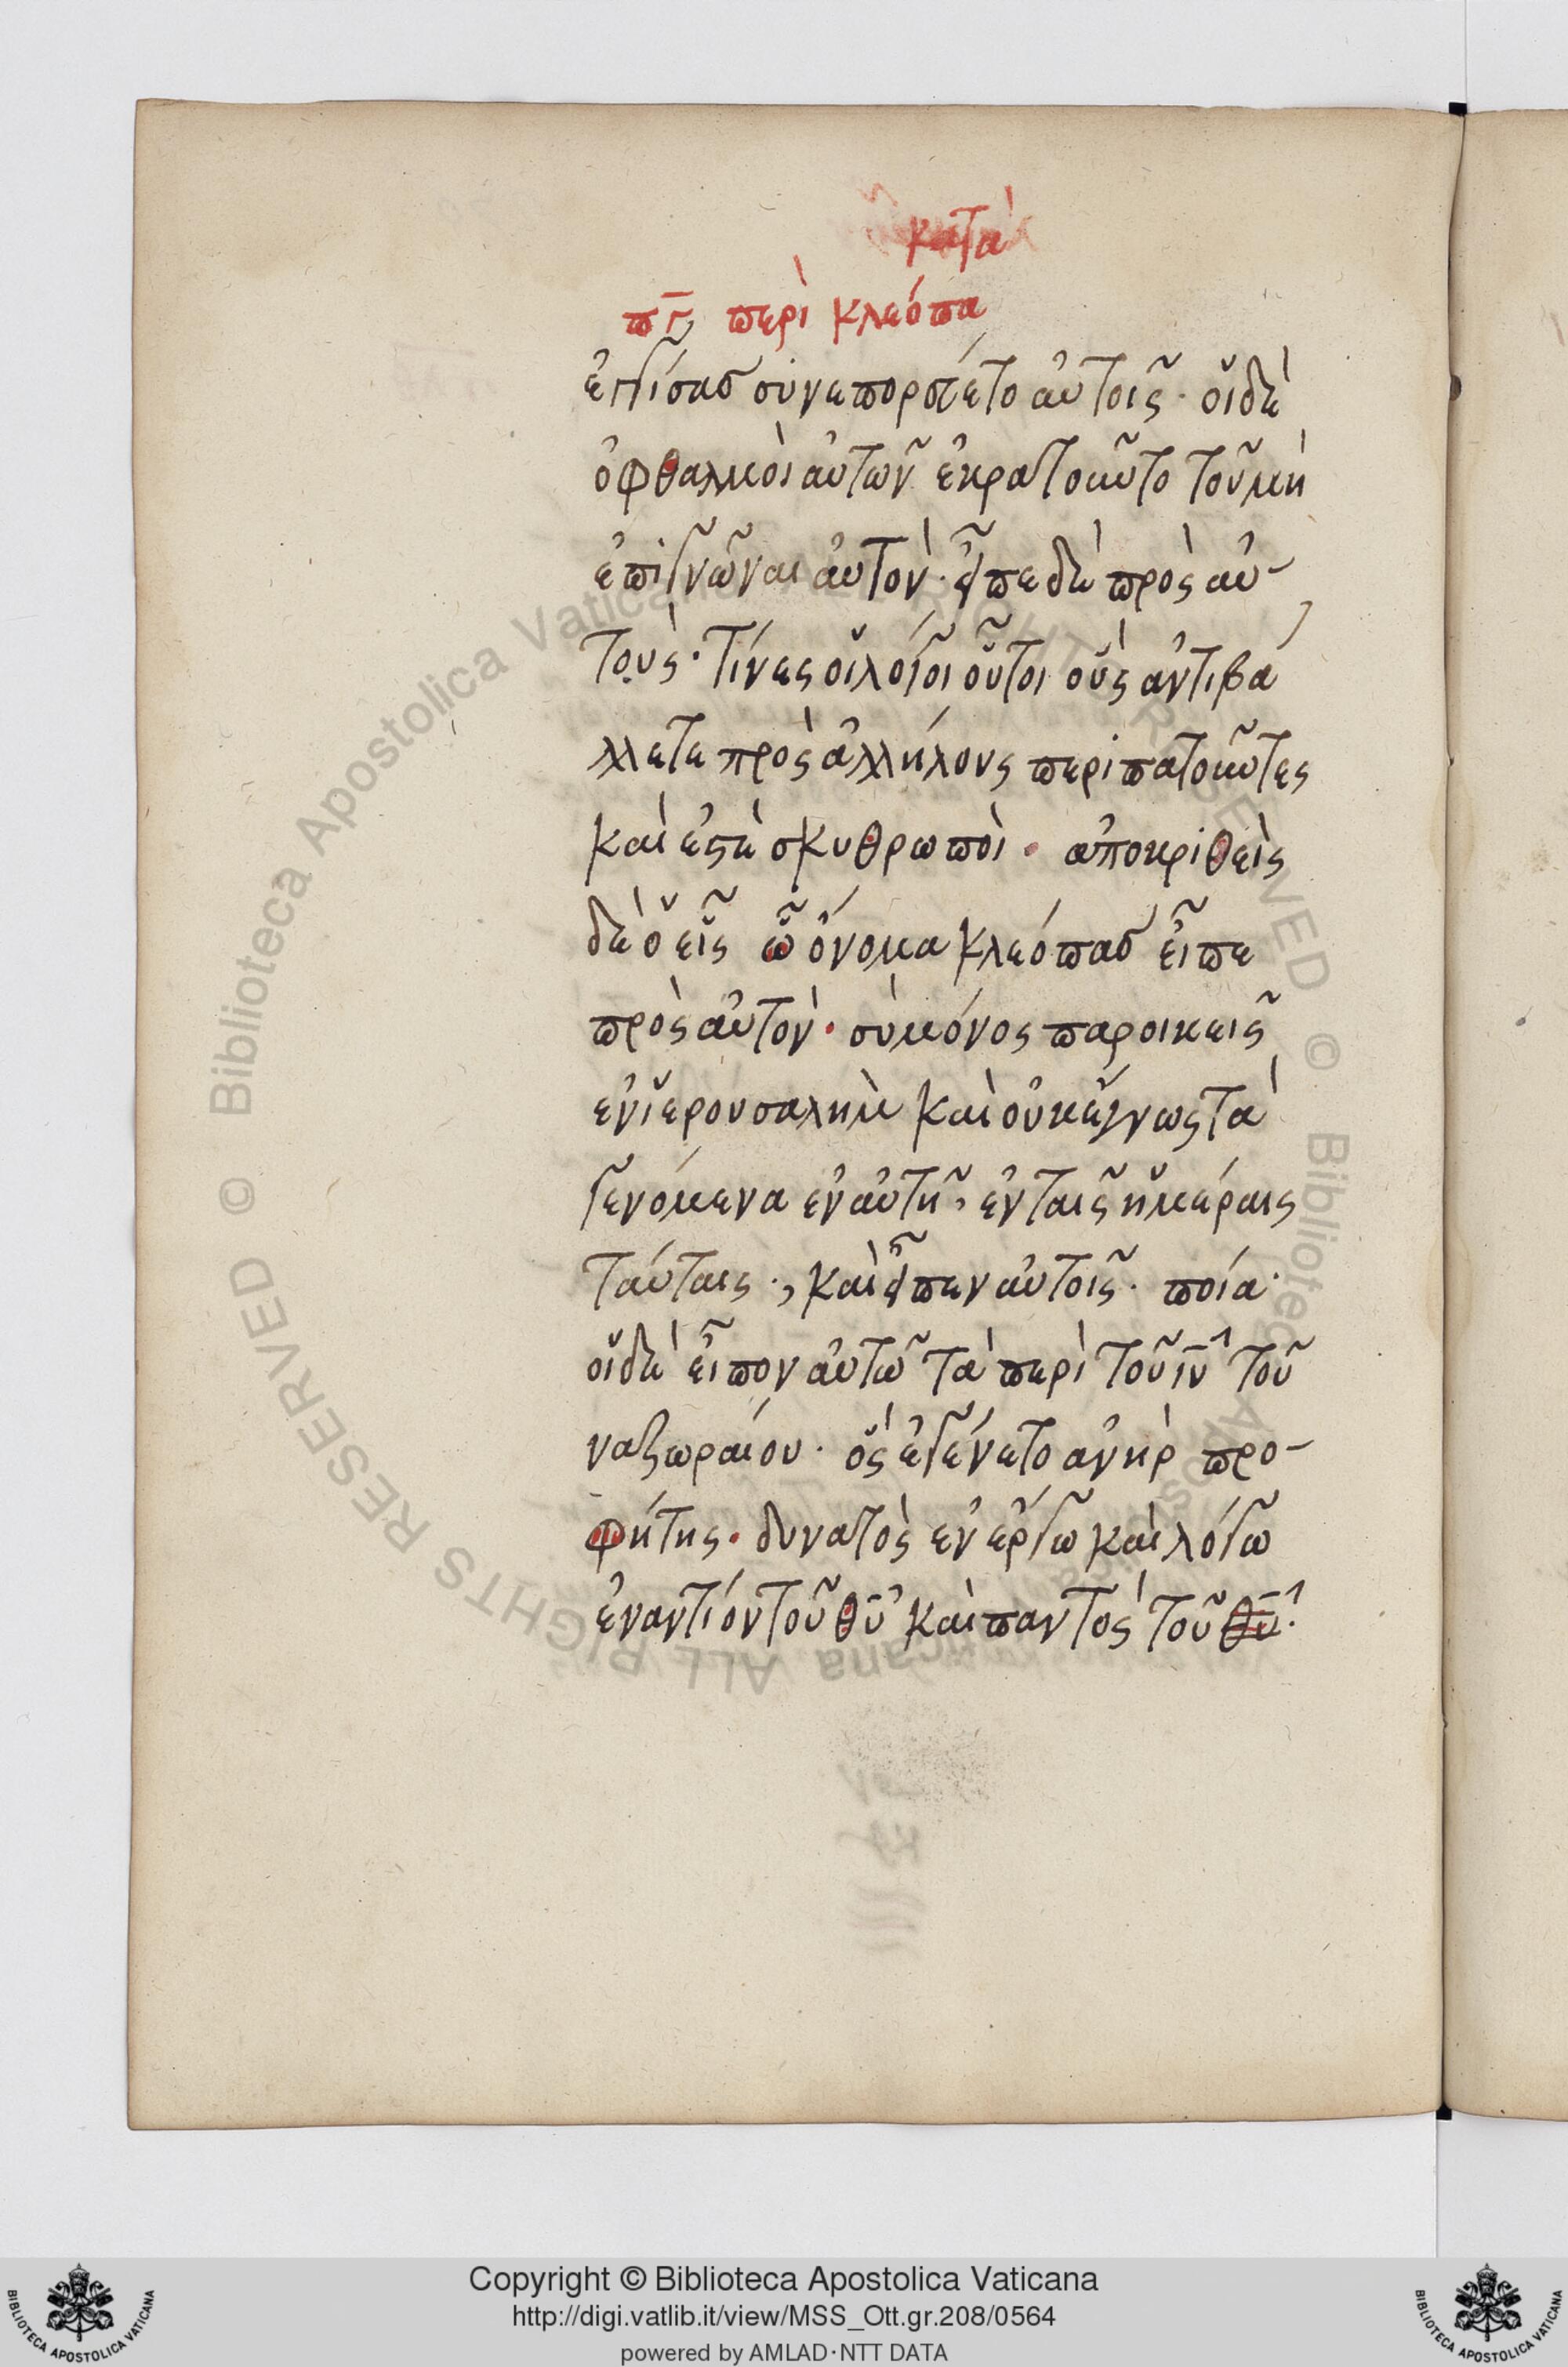 κατὰ
πγ περὶ κλεόπα
ἐγγίσας συνεπορεύετο αὐτοῖς· οἱ δὲ
ὀφθαλμοὶ αὐτῶν ἐκρατοῦντο τοῦ μὴ
ἐπιγνῶναι αὐτόν· εἶπε δὲ πρὸς αὐ-
τούς· τίνες οἱ λόγοι οὗτοι οὓς ἀντιβά
λλετε πρὸς ἀλλήλους περιπατοῦντες
καὶ ἐστὲ σκυθρωποὶ· ἀποκριθεὶς
δὲ ὁ εἷς ᾧ ὄνομα κλεόπας εἶπε
πρὸς αὐτόν· σὺ μόνος παροικεῖς
ἐν ἱερουσαλὴμ καὶ οὐκ ἔγνως τὰ
γενόμενα ἐν αὐτῆ, ἐν ταῖς ἡμέραις
ταύταις·, καὶ εἶπεν αὐτοῖς· ποία·
οἱ δὲ εἶπον αὐτῶ τὰ περὶ τοῦ ιυ τοῦ
ναζωραίου· ὃς ἐγένετο ἀνὴρ προ-
φήτης· δυνατὸς ἐν ἔργω καὶ λόγω
ἐναντίον τοῦ θυ καὶ παντὸς τοῦ θυ·
Copyright © Biblioteca Apostolica Vaticana
http://digi.vatlib.it/view/MSS_Ott.gr.208/0564
powered by AMLAD·NTT DATA
BIBLIOTECA APOSTOLICA VATICANA
BIBLIOTECA APOSTOLICA VATICANA
© Biblioteca Apostolica Vaticana ALL RIGHTS RESERVED © Biblioteca Apostolica Vaticana ALL RIGHTS RESERVED